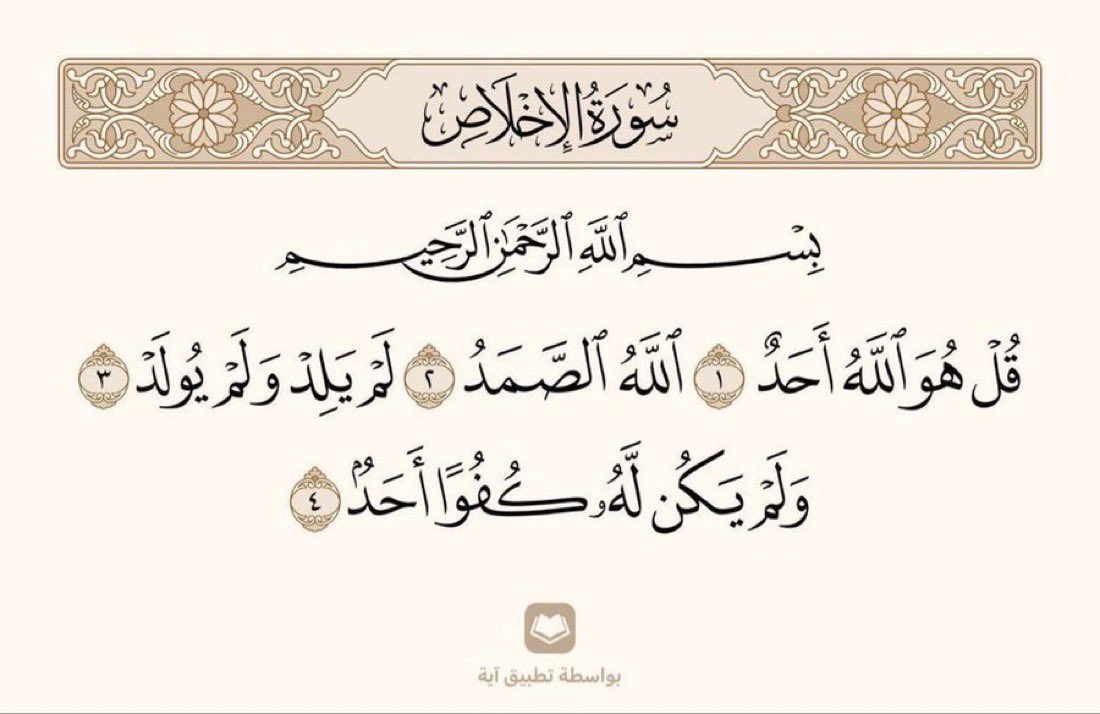 سُورَةُ الإِخْلَاصِ
بِسْمِ ٱللَّهِ ٱلرَّحْمَٰنِ ٱلرَّحِيمِ
قُلْ هُوَ ٱللَّهُ أَحَدٌ ١ ٱللَّهُ ٱلصَّمَدُ ٢ لَمْ يَلِدْ وَلَمْ يُولَدْ ٣
وَلَمْ يَكُن لَّهُۥ كُفُوًا أَحَدُۢ ٤
بواسطة تطبيق آية